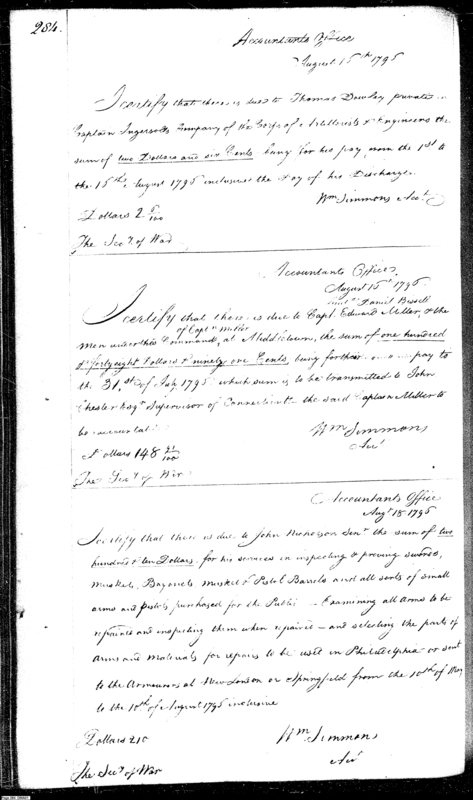 284.
Accountants Office
August 15th 1795
I certify that there is due to Thomas Dowley private in
Captain Ingersolls Company of the Corps of Artillerists & Engineers the
sum of two Dollars and six Cents being for his pay from the 1st to
the 15th August 1795 inclusive the Day of his Discharge
Wm Simmons Acct
Dollars 2 6/100
The Secy of War
Accountants Office
August 15th 1795
Daniel Bissell
I certify that there is due to Capt. Edward Miller, & the
of Capt Miller
men under this Command, at Middletown, the sum of one hundred
& fortyeight Dollars & ninety one Cents, being for their pay to
the 31st of July 1795 which sum is to be transmitted to John
Chester Esqr Supervisor of Connecticut the said Captain Miller to
be accountable
Dollars 148 91/100
Wm Simmons
Acct
The Secy of War
Accountants Office
Augt 18 1795
I certify that there is due to John Nicholson Senr the sum of two
hundred & ten Dollars for his services in inspecting & proving swords,
Muskets, Bayonets Musket & Pistol Barrels and all sorts of small
arms and pistols purchased for the Public - Examining all Arms to be
repaired and inspecting them when repaired - and selecting the parts of
Arms and Materials for repairs to be used in Philadelphia or sent
to the Armourers at New London or Springfield from the 10th of May
to the 10th of August 1795 inclusive
Dollars 210
Wm Simmons
Acct
The Secy of War